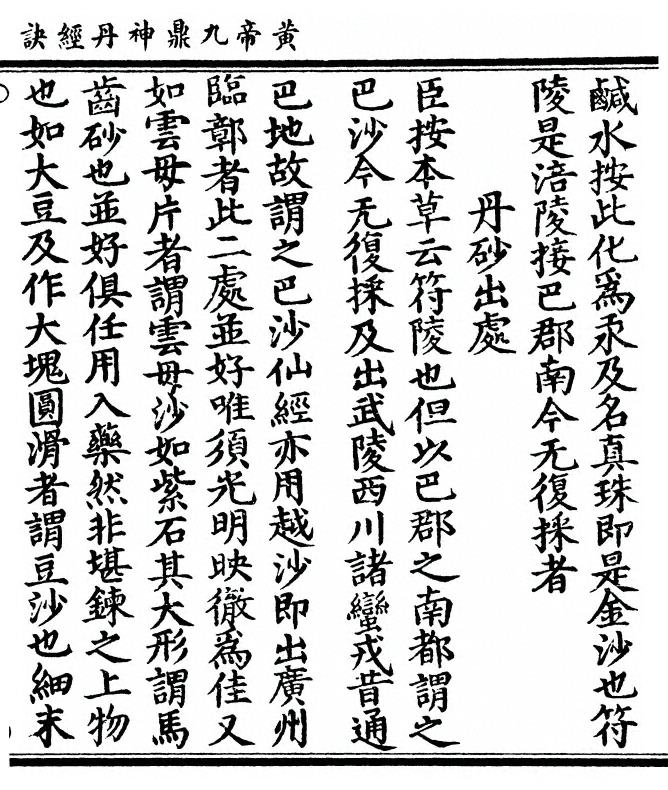 黃帝九鼎神丹經訣
鹹水按此化為汞及名真珠即是金沙也符
陵是涪陵接巴郡南今无復採者
丹砂出處
臣按本草云符陵也但以巴郡之南都謂之
巴沙今无復採及出武陵西川諸蠻戎昔通
巴地故謂之巴沙仙經亦用越沙即出廣州
臨鄣者此二處並好唯須光明映徹為佳又
如雲母片者謂雲母沙如紫石其大形謂馬
齒砂也並好俱任用入藥然非堪鍊之上物
也如大豆及作大塊圓滑者謂豆沙也細末